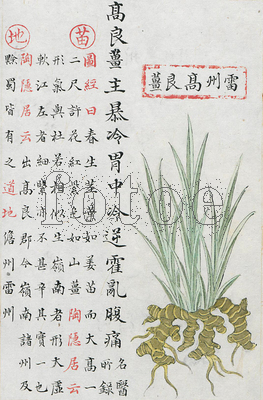 雷州髙良薑
髙良薑主暴冷胃中冷逆霍亂腹痛
名醫
所錄
苗
圖經曰春生莖葉如姜苗而大高一
二尺許花紅紫色如山薑陶隱居云
形氣與杜若相似生嶺南者形大虛
軟江左者細緊亦不甚辛其實一也
地
陶隱居云出高良郡今嶺南諸州及
黔蜀皆有之道地儋州雷州
fotoe